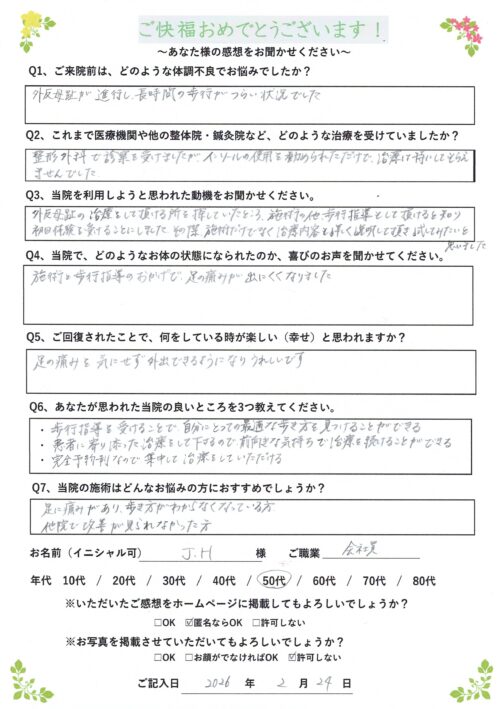 ご快福おめでとうございます！
～あなた様の感想をお聞かせください～
Q1、ご来院前は、どのような体調不良でお悩みでしたか？
外反母趾が進行し、長時間の歩行がつらい状況でした
Q2、これまで医療機関や他の整体院・鍼灸院など、どのような治療を受けていましたか？
整形外科で診察を受けましたが、インソールの使用を勧められただけで、治療は特にしてもらえ
ませんでした
Q3、当院を利用しようと思われた動機をお聞かせください。
外反母趾の治療をして頂ける所を探していたところ、施術の他歩行指導として頂けると知り
初回体験を受けることにしました 施術だけでなく治療内容も詳しく説明して頂き試してみたいと
思いました
Q4、当院で、どのようなお体の状態になられたのか、喜びのお声を聞かせてください。
施術と歩行指導のおかげで、足の痛みが出にくくなりました
Q5、ご回復されたことで、何をしている時が楽しい（幸せ）と思われますか？
足の痛みを気にせず外出できるようになりうれしいです
Q6、あなたが思われた当院の良いところを3つ教えてください。
・歩行指導を受けることで、自分にとっての最適な歩き方を見つけることができる
・患者に寄り添った治療をして下さるので前向きな気持ちで治療を続けることができる
・完全予約制なので集中して治療をしていただける
Q7、当院の施術はどんなお悩みの方におすすめでしょうか？
足に痛みがあり、歩き方がわからなくなっている方
他院で改善が見られなかった方
お名前（イニシャル可） J.H 様 ご職業 会社員
年代 10代 / 20代 / 30代 / 40代 / 50代 / 60代 / 70代 / 80代
※いただいたご感想をホームページに掲載してもよろしいでしょうか？
□OK ☑匿名ならOK □許可しない
※お写真を掲載させていただいてもよろしいでしょうか？
□OK □お顔がでなければOK ☑許可しない
ご記入日 2026 年 2 月 24 日